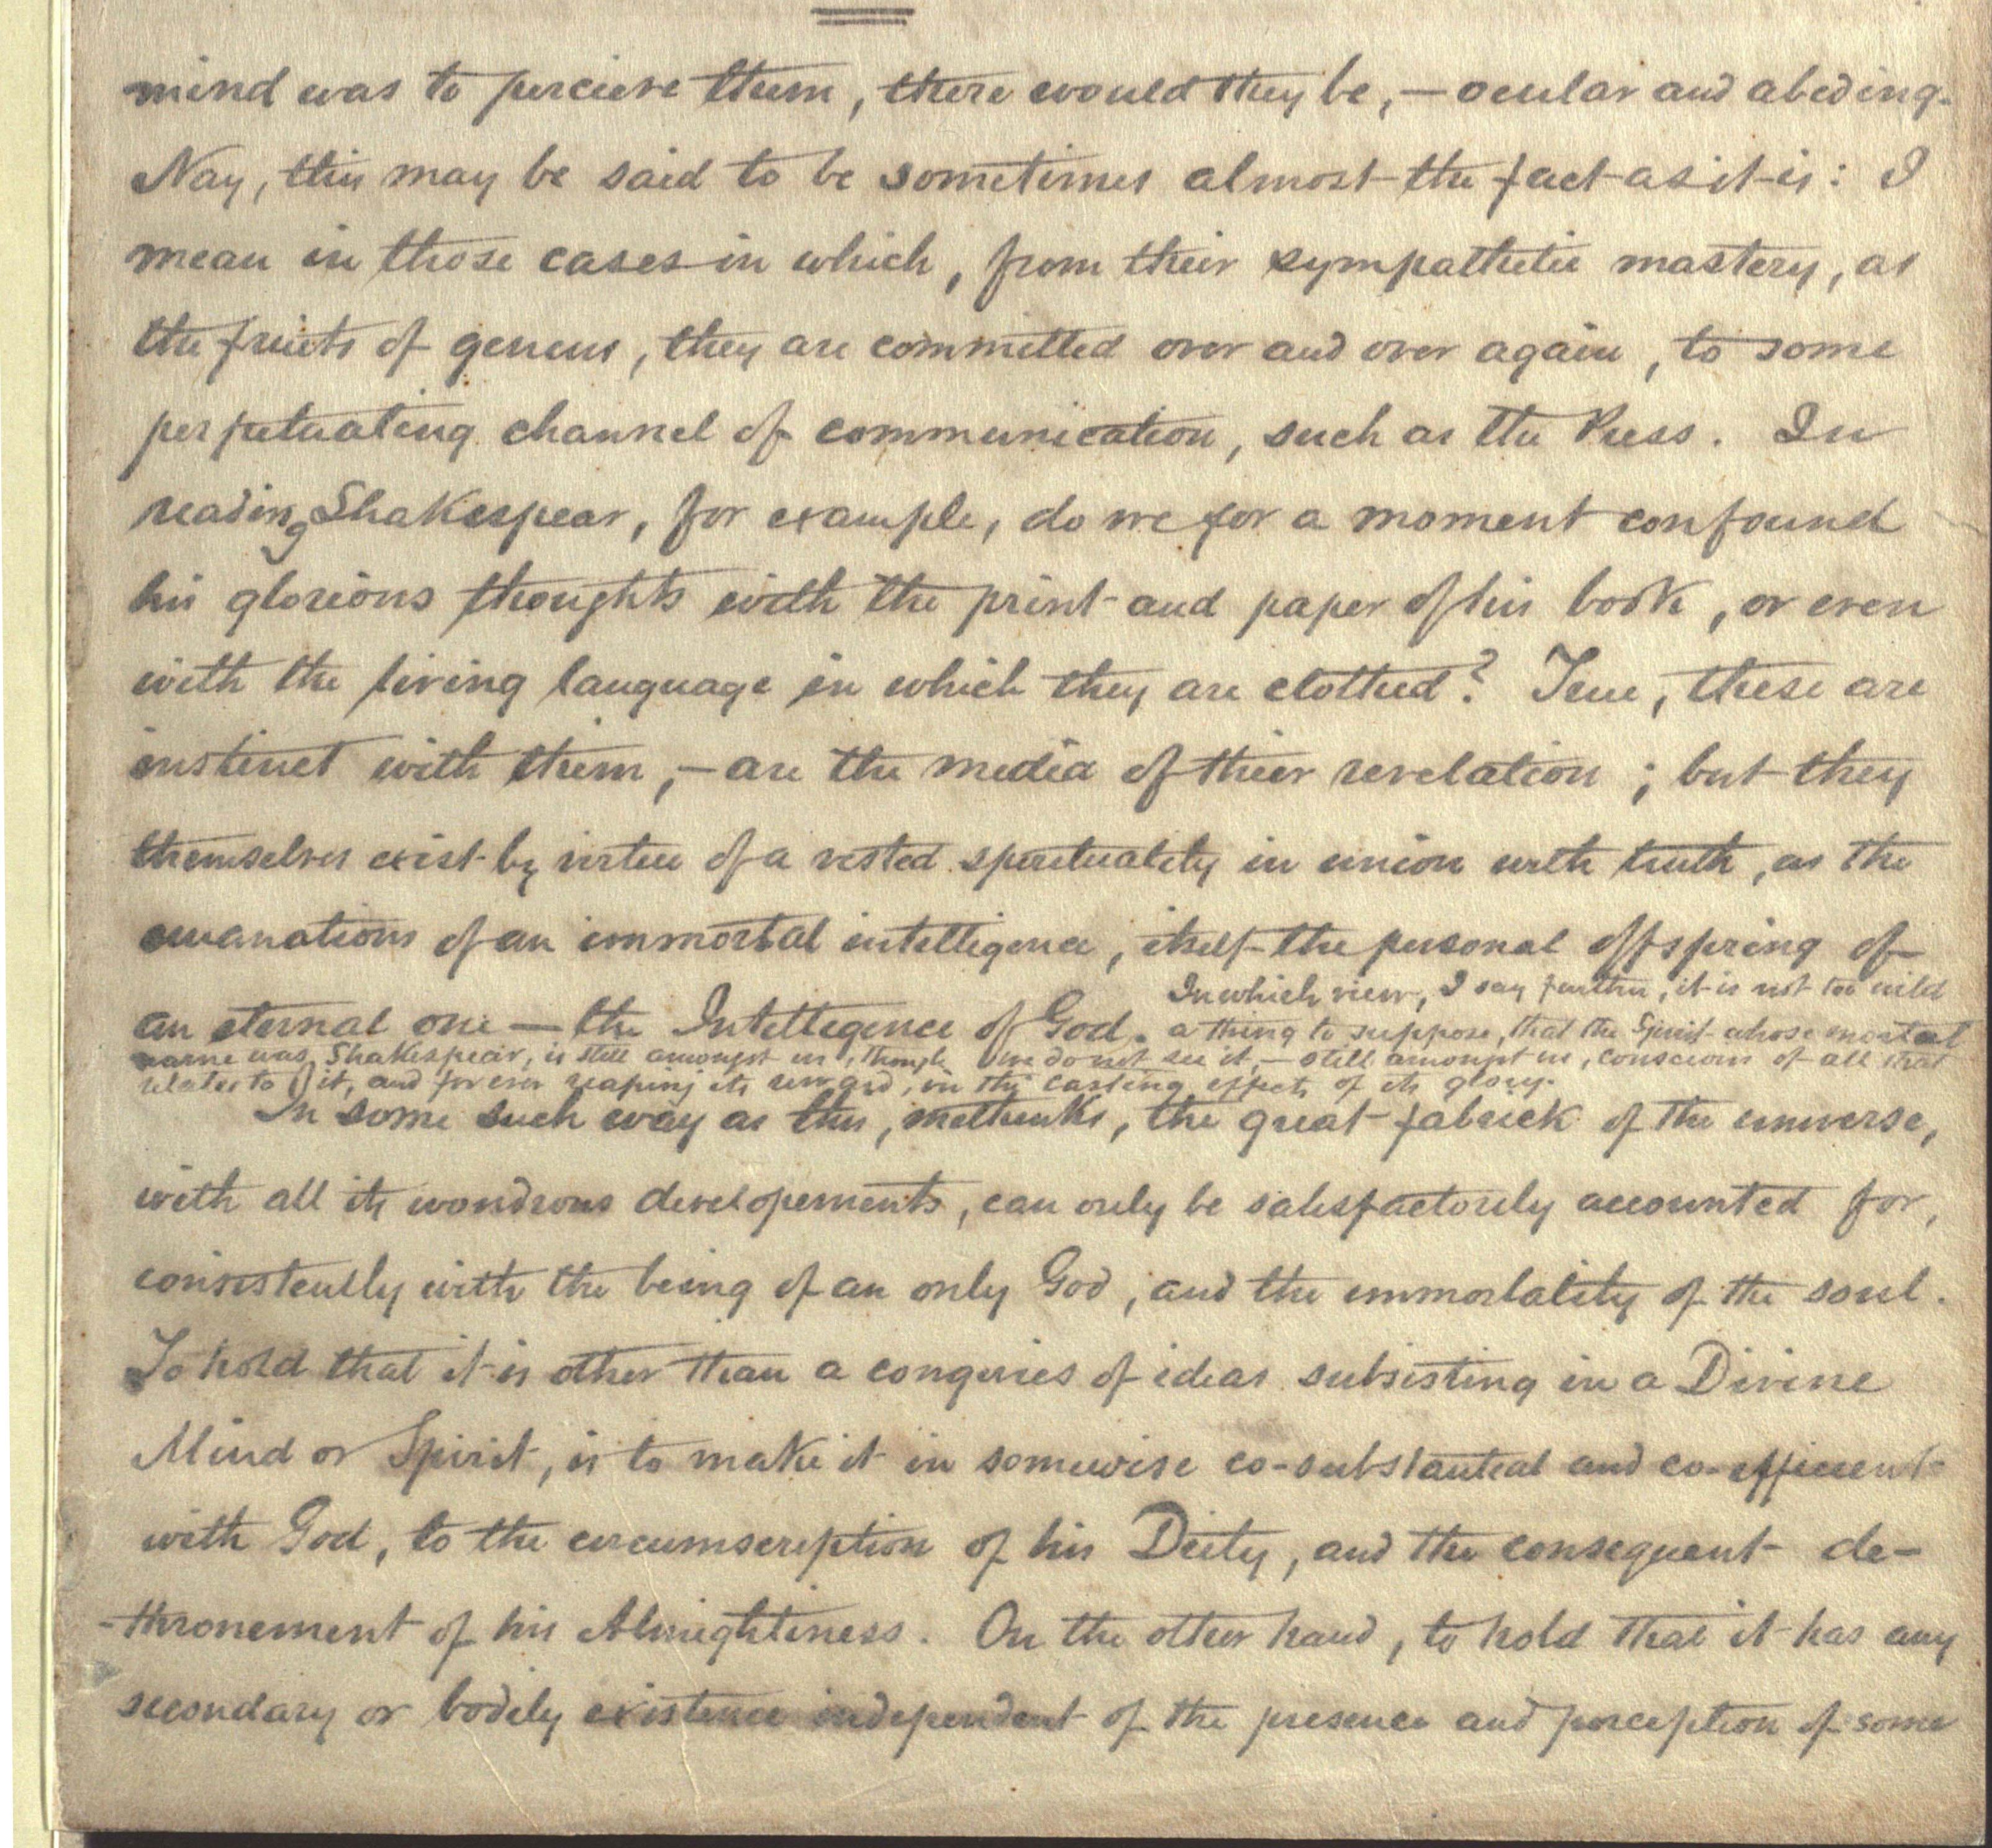 mind was to percieve them, there would they be, — ocular and abiding.
Nay, this may be said to be sometimes almost the fact as it is: I
mean in those cases in which, from their sympathetic mastery, as
the fruits of genius, they are committed over and over again, to some
perpetuating channel of communication, such as the Press. In
reading Shakespear, for example, do we for a moment confound
his glorious thoughts with the print and paper of his book, or even
with the living language in which they are clothed? True, these are
instinct with them, — are the media of their revelation; but they
themselves exist by virtue of a vested spirituality in union with truth, as the
emanations of an immortal intelligence, itself the personal offspring of
In which view, I say further, it is not too wild
an eternal one — the Intelligence of God. a thing to suppose, that the Spirit whose mortal
name was Shakespear, is still amongst us, though we do not see it, — still amongst us, conscious of all that
relates to it, and for ever reaping its reward, in the lasting effects of its glory.
In some such way as this, methinks, the great fabrick of the universe,
with all its wondrous developements, can only be satisfactorily accounted for,
consistently with the being of an only God, and the immortality of the soul.
To hold that it is other than a congeries of ideas subsisting in a Divine
Mind or Spirit, is to make it in somewise co-substantial and co-efficient
with God, to the circumscription of his Deity, and the consequent de-
-thronement of his Almightiness. On the other hand, to hold that it has any
secondary or bodily existence independent of the presence and perception of some